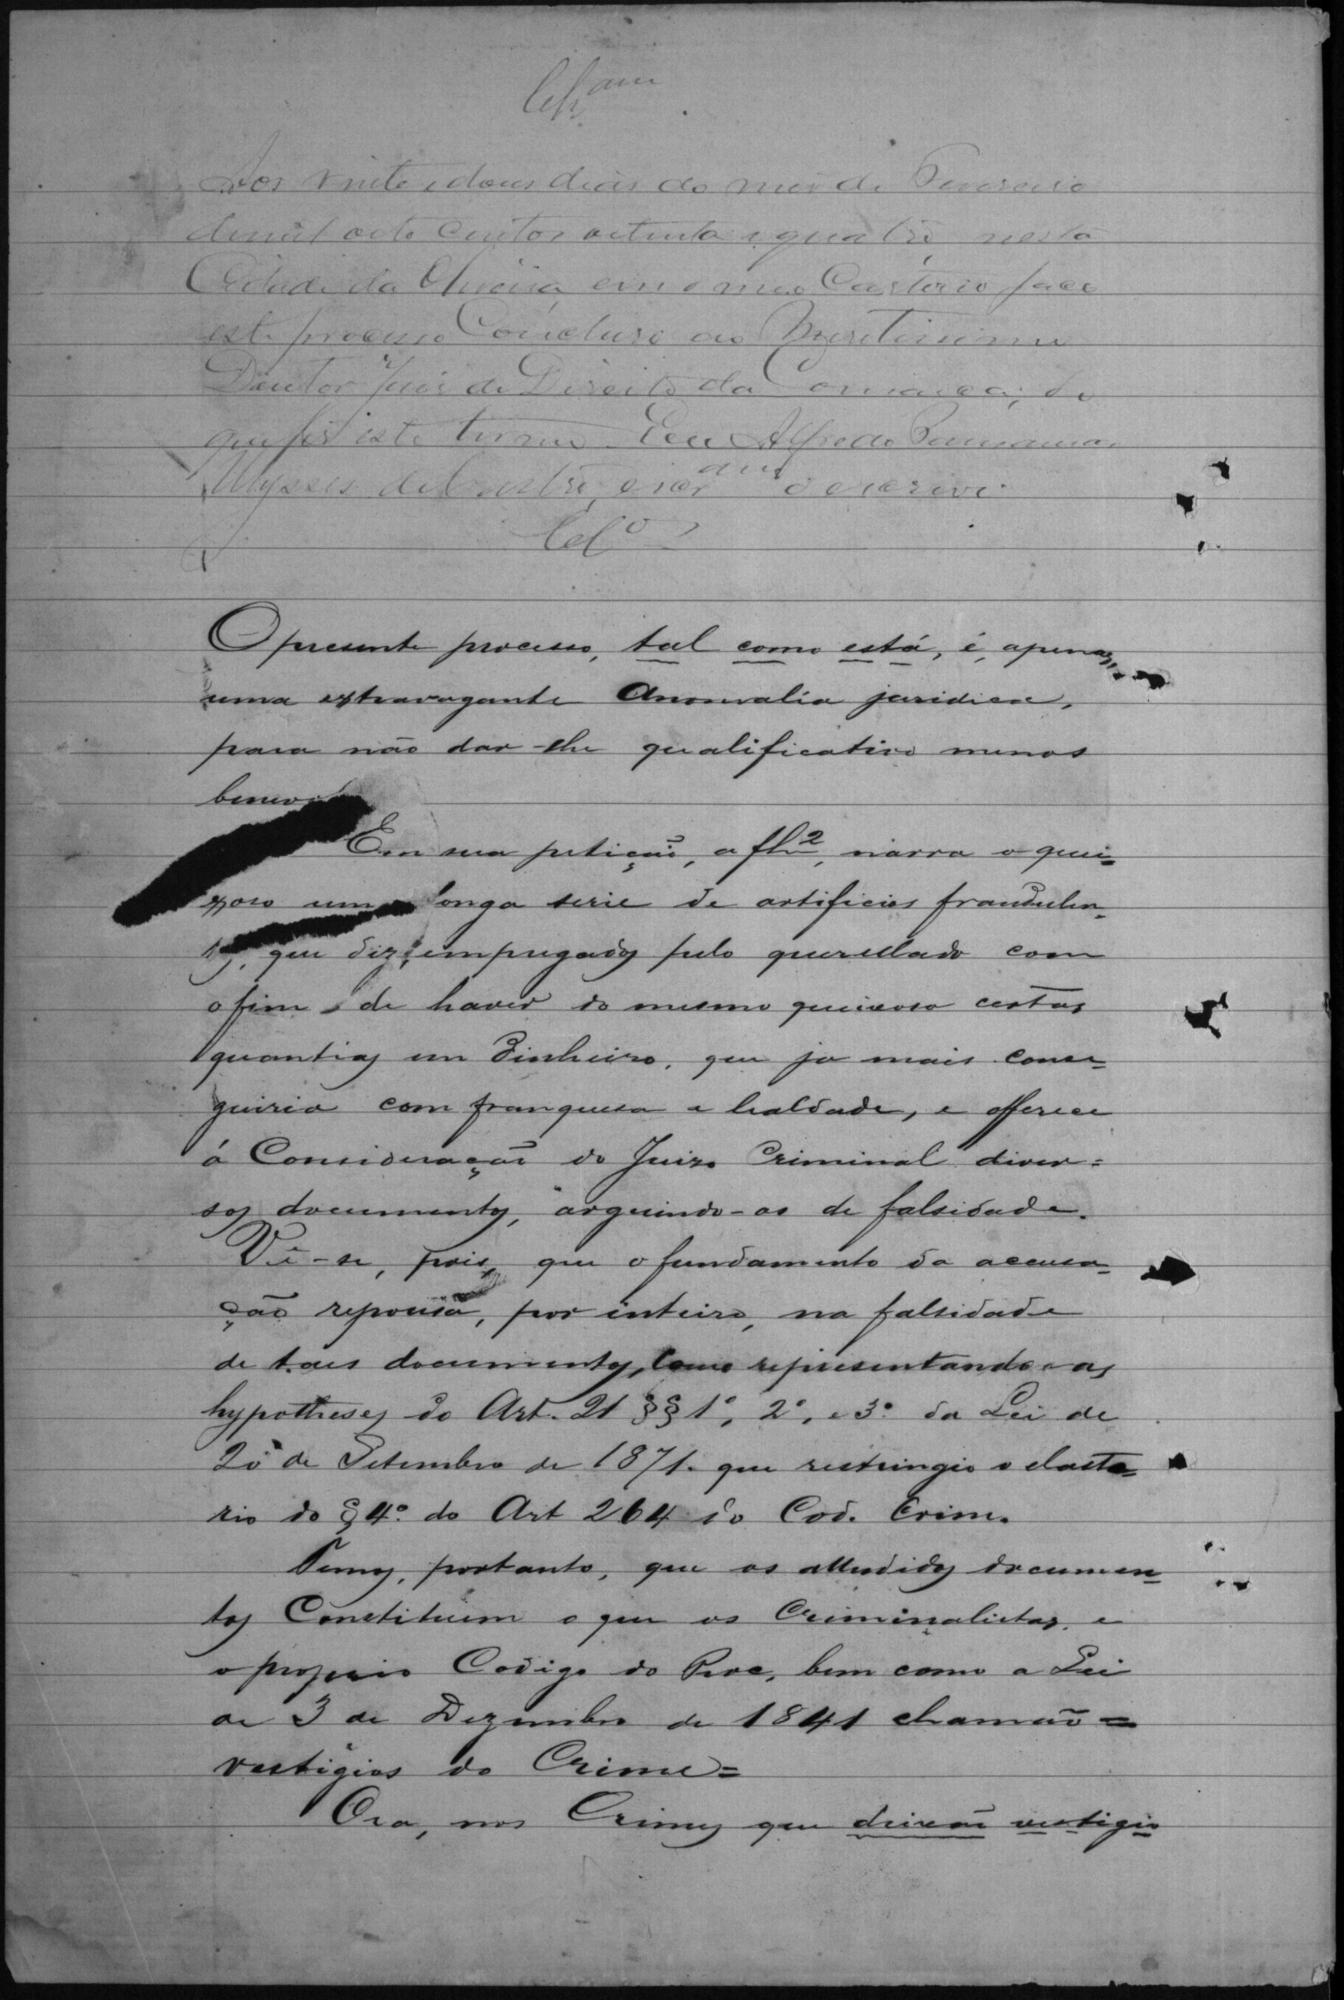 Aos vinte e dous dias do mes de Fevereiro
de mil oito centos oitenta e quatro nesta
Cidade da em o meo Cartorio faço
este processo Concluso ao Meretissimo
Doutor Juis de Direito da Comarca; do
que fis este termo. Eu Alfredo
Ulysses de Castro, escr.am o escrevi.
Cls.o
O presente processo, tal como está, é, apenas,
uma extravagante anomalia juridica,
para não dar-lhe qualificativo menos
benevo
Em sua petição, a fls 2, narra o quei=
xoso uma longa serie de artificios fraudulen=
tos, que diz empregados pelo querellado com
o fim de haver do mesmo queixoso certas
quantias em dinheiro, que ja mais conse=
guiria com franquesa e lealdade, e offerece
á Consideração do Juizo Criminal diver=
sos documentos, arguindo-os de falsidade.
Vê-se, pois, que o fundamento da accusa=
ção repousa, por inteiro, na falsidade
de taes documentos, como representando as
hypotheses do Art. 21 §§ 1º, 2º, e 3º da Lei de
20 de Setembro de 1871. que restringio o elaste=
rio do § 4º do Art 264 do Cod. Crim.
Temos, portanto, que os alludidos documen=
tos Constituem o que os Criminalistas, e
o proprio Codigo do Proc, bem como a Lei
de 3 de Dezembro de 1841 chamão =
vestigios do Crime =
Ora, nos Crimes que deixão vestigios